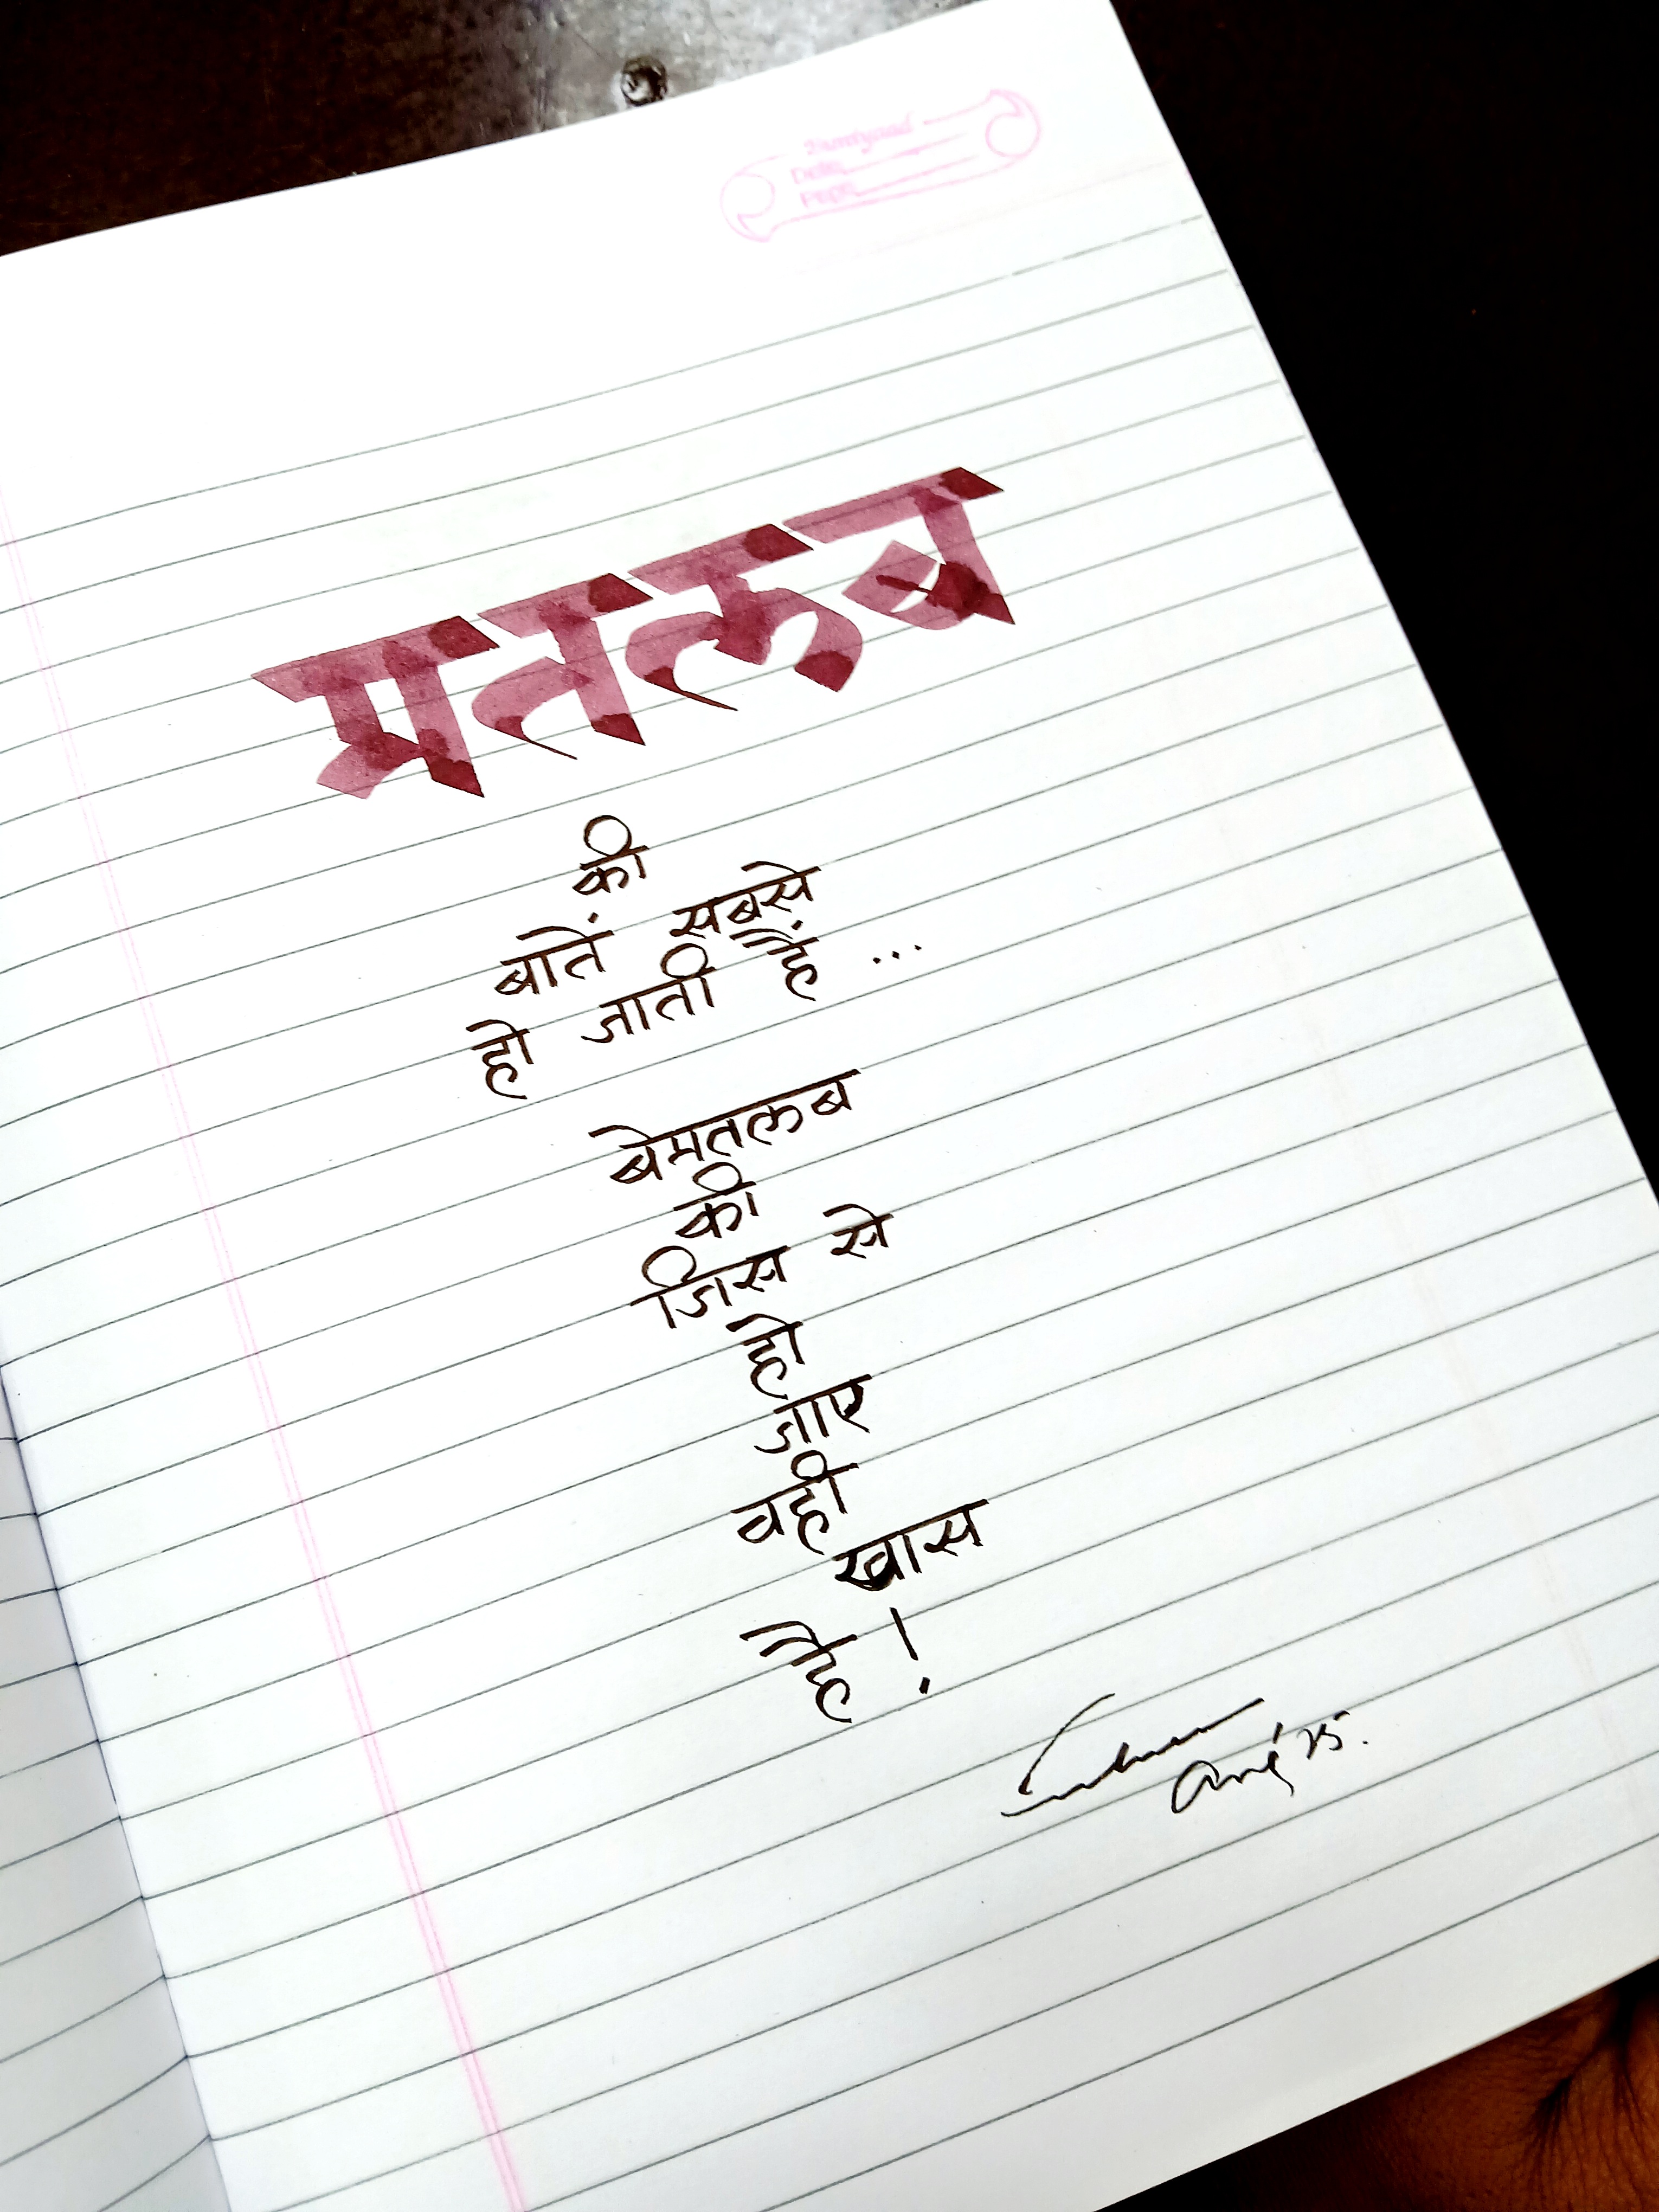 Date
Page
मतलब
की
बातें सबसे
हो जाती हैं ...
बेमतलब
की
जिस से
हो
जाए
वही
खास
है !
Aug'25.